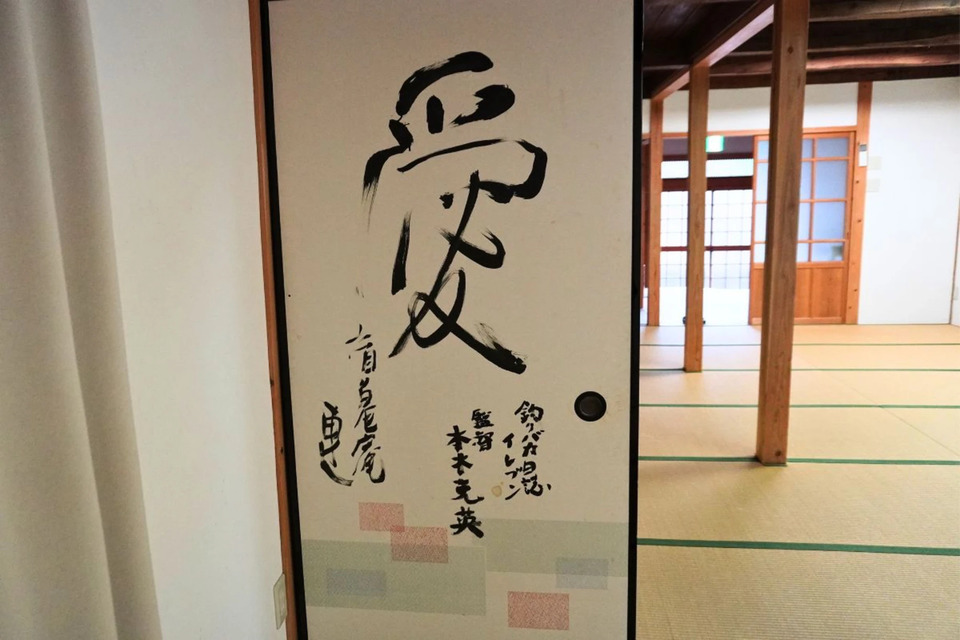 愛
釣りバカ日誌
イレブン
監督
本木克英